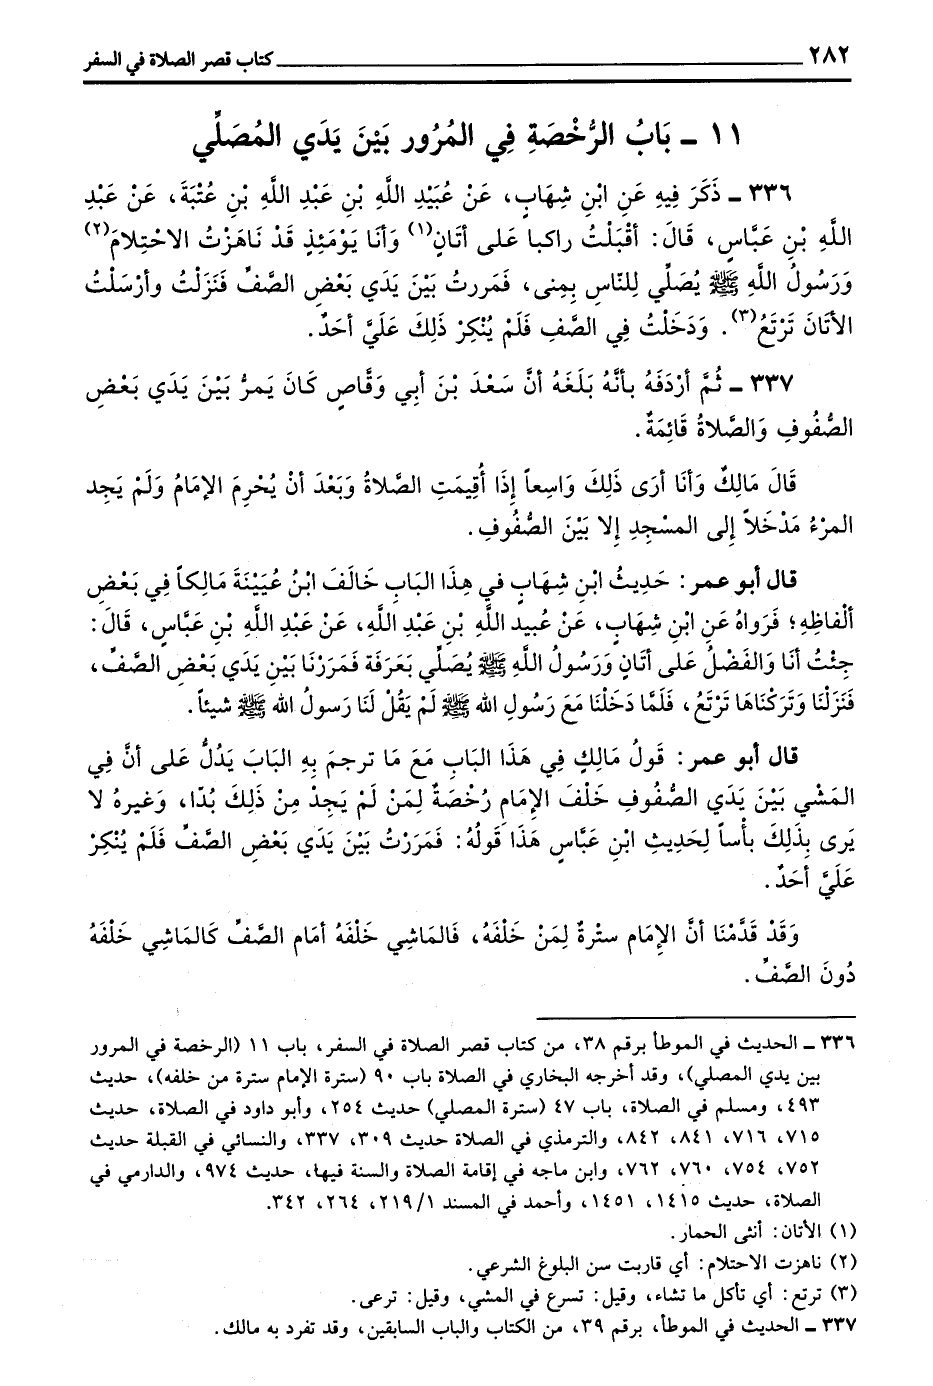 ٢٨٢ كتاب قصر الصلاة في السفر
١١ ـ بَابُ الرُّخْصَةِ فِي المُرُور بَيْنَ يَدَي المُصَلِّي
٣٣٦ ـ ذَكَرَ فِيهِ عَنِ ابْنِ شِهَابٍ، عَنْ عُبَيْدِ اللَّهِ بْنِ عَبْدِ اللَّهِ بْنِ عُتْبَةَ، عَنْ عَبْدِ
اللَّهِ بْنِ عَبَّاسٍ، قَالَ: أَقْبَلْتُ راكبا عَلى أَتَانٍ(١) وَأَنا يَوْمَئِذٍ قَدْ نَاهَزْتُ الاحْتِلامَ(٢)
وَرَسُولُ اللَّهِ ﷺ يُصَلِّي لِلنّاسِ بِمِنى، فَمَررتُ بَيْنَ يَدَي بَعْضِ الصَّفِّ فَنَزَلْتُ وأَرْسَلْتُ
الأتَانَ تَرْتَعُ(٣). وَدَخَلْتُ فِي الصَّفِ فَلَمْ يُنْكِرْ ذَلِكَ عَلَيَّ أحَدٌ.
٣٣٧ ـ ثُمَّ أرْدَفَهُ بأنَّهُ بَلَغَهُ أنَّ سَعْدَ بْنَ أبي وَقَّاصٍ كَانَ يَمرُّ بَيْنَ يَدَي بَعْضِ
الصُّفُوفِ وَالصَّلاةُ قَائِمَةٌ.
قَالَ مَالِكٌ وَأنا أرَى ذَلِكَ وَاسِعاً إذَا أُقِيمَتِ الصَّلاةُ وَبَعْدَ أنْ يُحْرِمَ الإمَامُ وَلَمْ يَجِد
المرْءُ مَدْخَلاً إلى المسْجِدِ إلا بَيْنَ الصُّفُوفِ.
قال أبو عمر: حَدِيثُ ابْنِ شِهَابٍ في هِذَا البَابِ خَالَفَ ابْنُ عُيَيْنَةَ مَالِكاً فِي بَعْضِ
ألْفاظِهِ؛ فَرَواهُ عَنِ ابْنِ شِهَابٍ، عَنْ عُبيد اللَّهِ بْنِ عَبْدِ اللَّهِ، عَنْ عَبْدِ اللَّهِ بْنِ عَبَّاسٍ، قَالَ:
جِئْتُ أنَا وَالفَضْلُ عَلى أتَانٍ وَرَسُولُ اللَّهِ ﷺ يُصَلِّي بَعَرفَة فَمَرَرْنَا بَيْنِ يَدَي بَعْضِ الصَّفِّ،
فَنَزَلْنَا وَتَرَكْنَاهَا تَرْتَعُ، فَلَمَّا دَخَلْنَا مَعَ رَسُولِ الله ﷺ لَمْ يَقُلْ لَنَا رَسولُ الله ﷺ شيئاً.
قال أبو عمر: قَولُ مَالِكٍ فِي هَذَا البَابِ مَعَ مَا ترجمَ بِهِ البَابَ يَدُلُّ عَلى أنَّ فِي
المَشْي بَيْنَ يَدَي الصُّفُوفِ خَلْفَ الإمَامِ رُخْصَةٌ لِمَنْ لَمْ يَجِدْ مِنْ ذَلِكَ بُدّا، وَغيرهُ لا
يَرى بِذَلِكَ بأساً لِحَدِيثِ ابْنِ عَبَّاسٍ هَذَا قَولُهُ: فَمَرَرْتُ بَيْنَ يَدَي بَعْضِ الصَّفِّ فَلَمْ يُنْكِرْ
عَلَيَّ أحَدٌ.
وَقَدْ قَدَّمْنَا أنَّ الإمَام سترَةٌ لِمَنْ خَلْفَهُ، فَالماشِي خَلْفَهُ أمَام الصَّفِّ كَالمَاشِي خَلْفَهُ
دُونَ الصَّفِّ.
٣٣٦ ـ الحديث في الموطأ برقم ٣٨، من كتاب قصر الصلاة في السفر، باب ١١ (الرخصة في المرور
بين يدي المصلي)، وقد أخرجه البخاري في الصلاة باب ٩٠ (سترة الإمام سترة من خلفه)، حديث
٤٩٣، ومسلم في الصلاة، باب ٤٧ (سترة المصلي) حديث ٢٥٤، وأبو داود في الصلاة، حديث
٧١٥، ٧١٦، ٨٤١، ٨٤٢، والترمذي في الصلاة حديث ٣٠٩، ٣٣٧، والنسائي في القبلة حديث
٧٥٢، ٧٥٤، ٧٦٠، ٧٦٢، وابن ماجه في إقامة الصلاة والسنة فيها، حديث ٩٧٤، والدارمي في
الصلاة، حديث ١٤١٥، ١٤٥١، وأحمد في المسند ٢١٩/١، ٢٦٤، ٣٤٢.
(١) الأتان: أنثى الحمار.
(٢) ناهزت الاحتلام: أي قاربت سن البلوغ الشرعي.
(٣) ترتع: أي تأكل ما تشاء، وقيل: تسرع في المشي، وقيل: ترعى.
٣٣٧ ـ الحديث في الموطأ، برقم ٣٩، من الكتاب والباب السابقين، وقد تفرد به مالك.